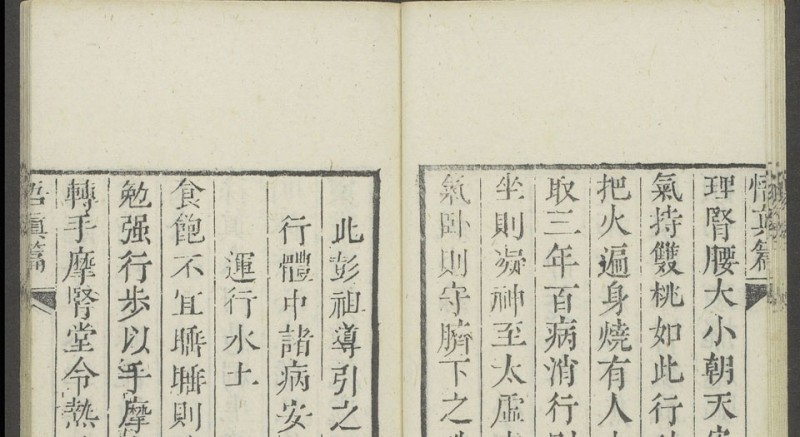 悟真篇
理腎腰大小朝天安
氣持雙桃如此行
把火遍身燒有人
取三年百病消行
坐則凝神至太虛
氣臥則守臍下之
此彭祖導引之
行體中諸病安
運行水土
食飽不宜睡睡則
勉强行步以手摩
轉手摩腎堂令熱
悟眞篇